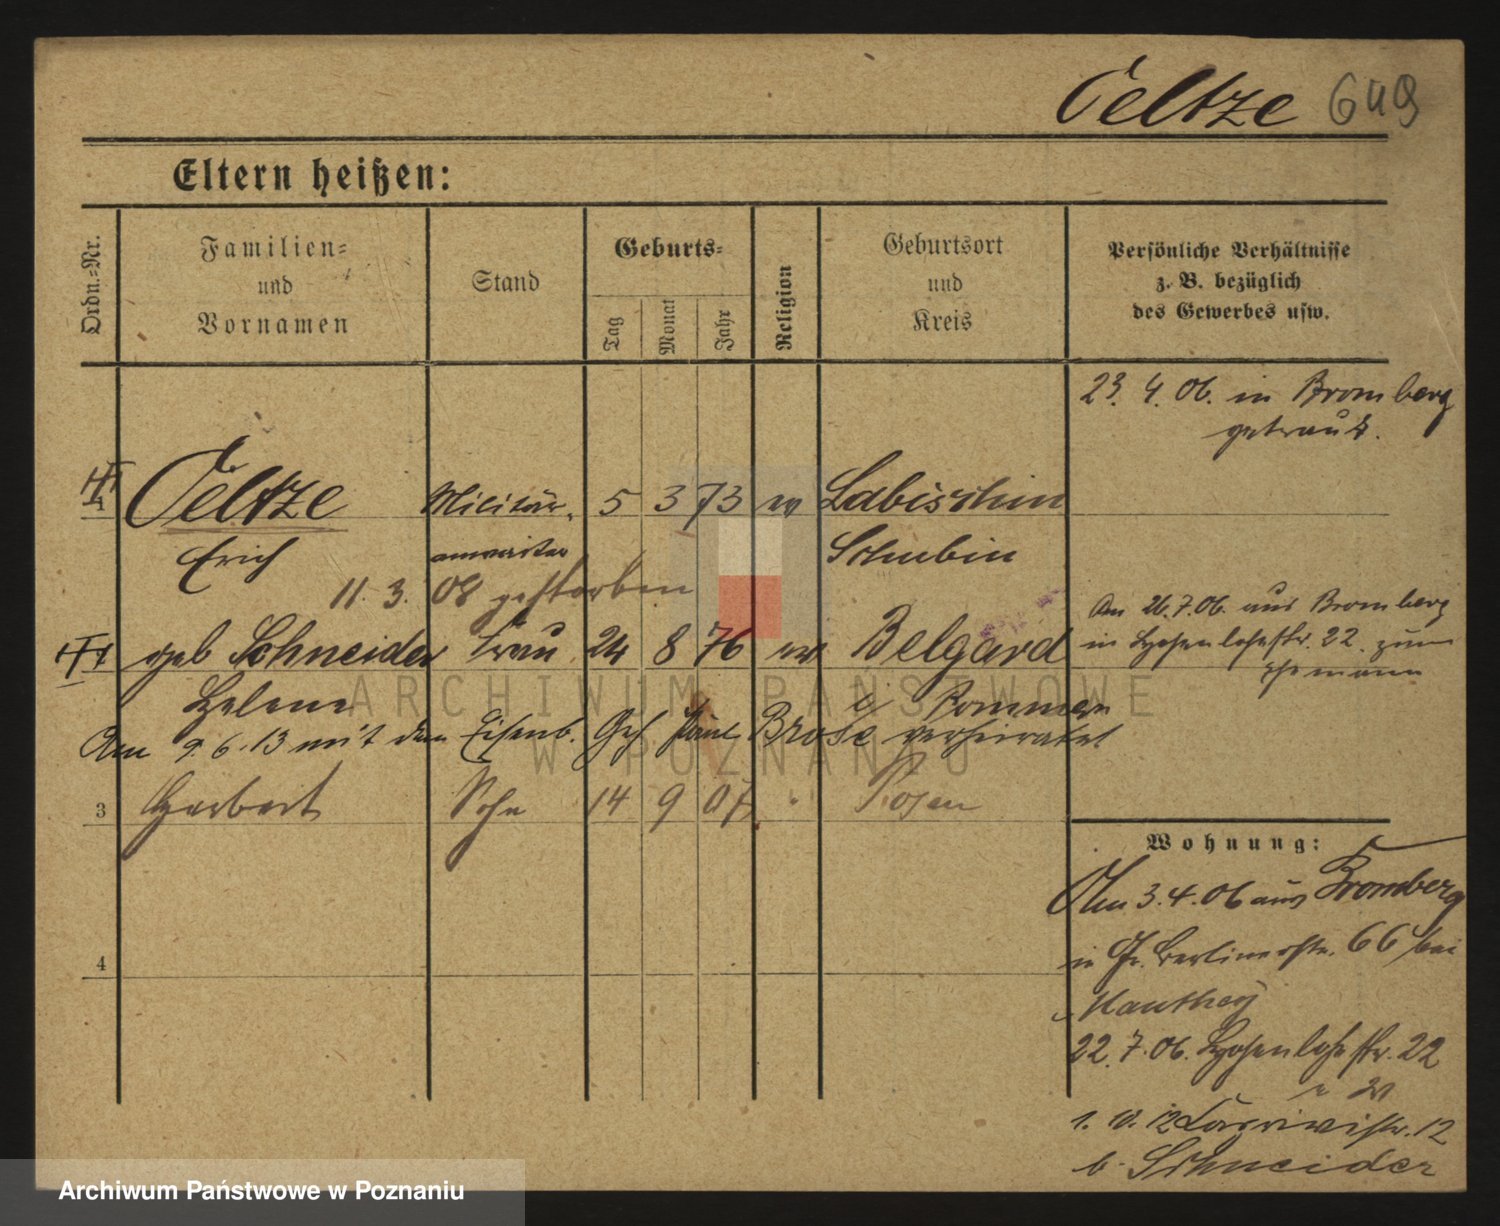 Oeltze 649
Eltern heißen:
Ordn.-Nr.
Familien-
und
Vornamen
Stand
Geburts-
Tag
Monat
Jahr
Religion
Geburtsort
und
Kreis
Persönliche Verhältnisse
z. B. bezüglich
des Gewerbes usw.
23. 4. 06. in Bromberg
getraut.
1 Oeltze Militär- 5 3 73 ev Labischin
Erich anwärter Schubin
11. 3. 08 gestorben
geb Schneider Frau 24 8 76 ev Belgard
Helene i Pommern
Am 26.7.06. aus Bromberg
in Hohenlohestr. 22. zum
Ehemann
Am 9. 6. 13 mit dem Eisenb. Geh. Paul Brose verheiratet
3 Herbert Sohn 14 9 07 " Posen
4
Wohnung:
Am 3.4.06 aus Bromberg
in Gr. Berlinerstr. 66 bei
Manthey
22. 7. 06. Hohenlohestr. 22
1. 10. 12 str. 12
b. Schneider
ARCHIWUM PAŃSTWOWE
W POZNANIU
Archiwum Państwowe w Poznaniu